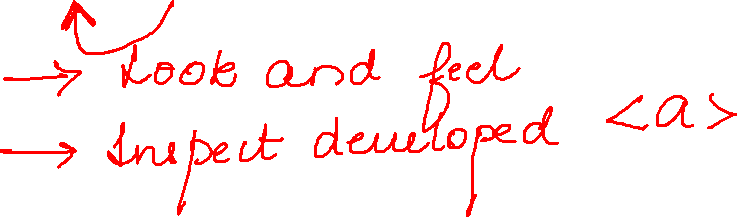 → Look and feel
→ Inspect developed <a>